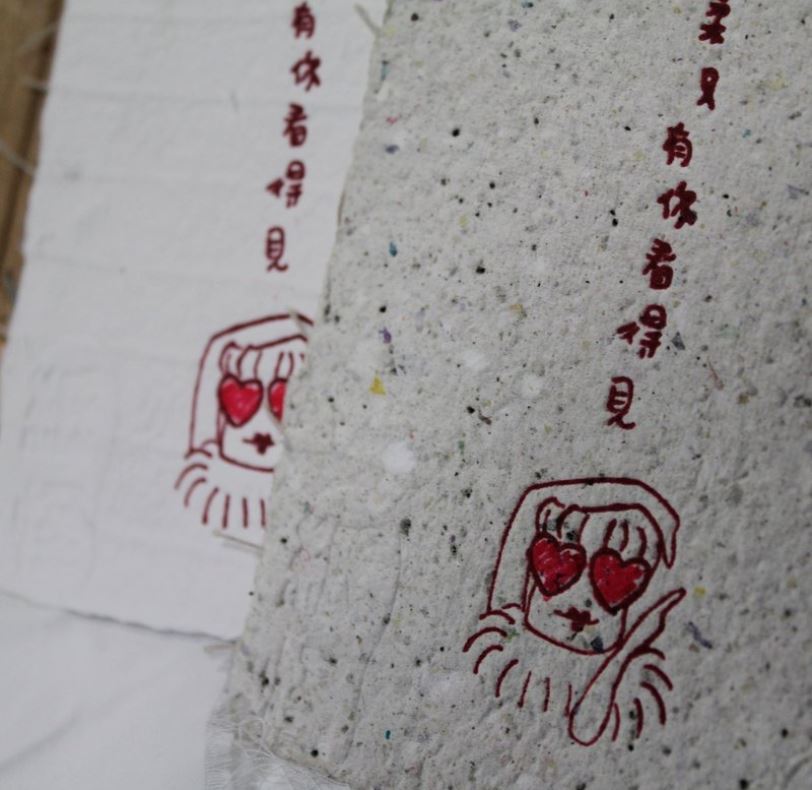 有你看得見
只有你看得見